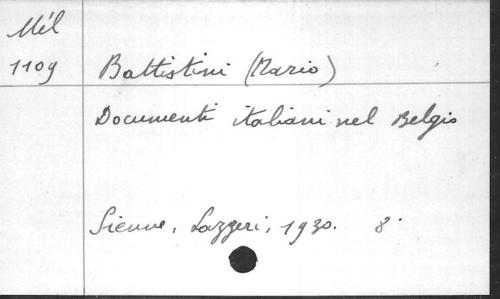 Mél
1109 Battistini (Mario)
Documenti italiani nel Belgio
Sienne, Lazzeri, 1930. 8°